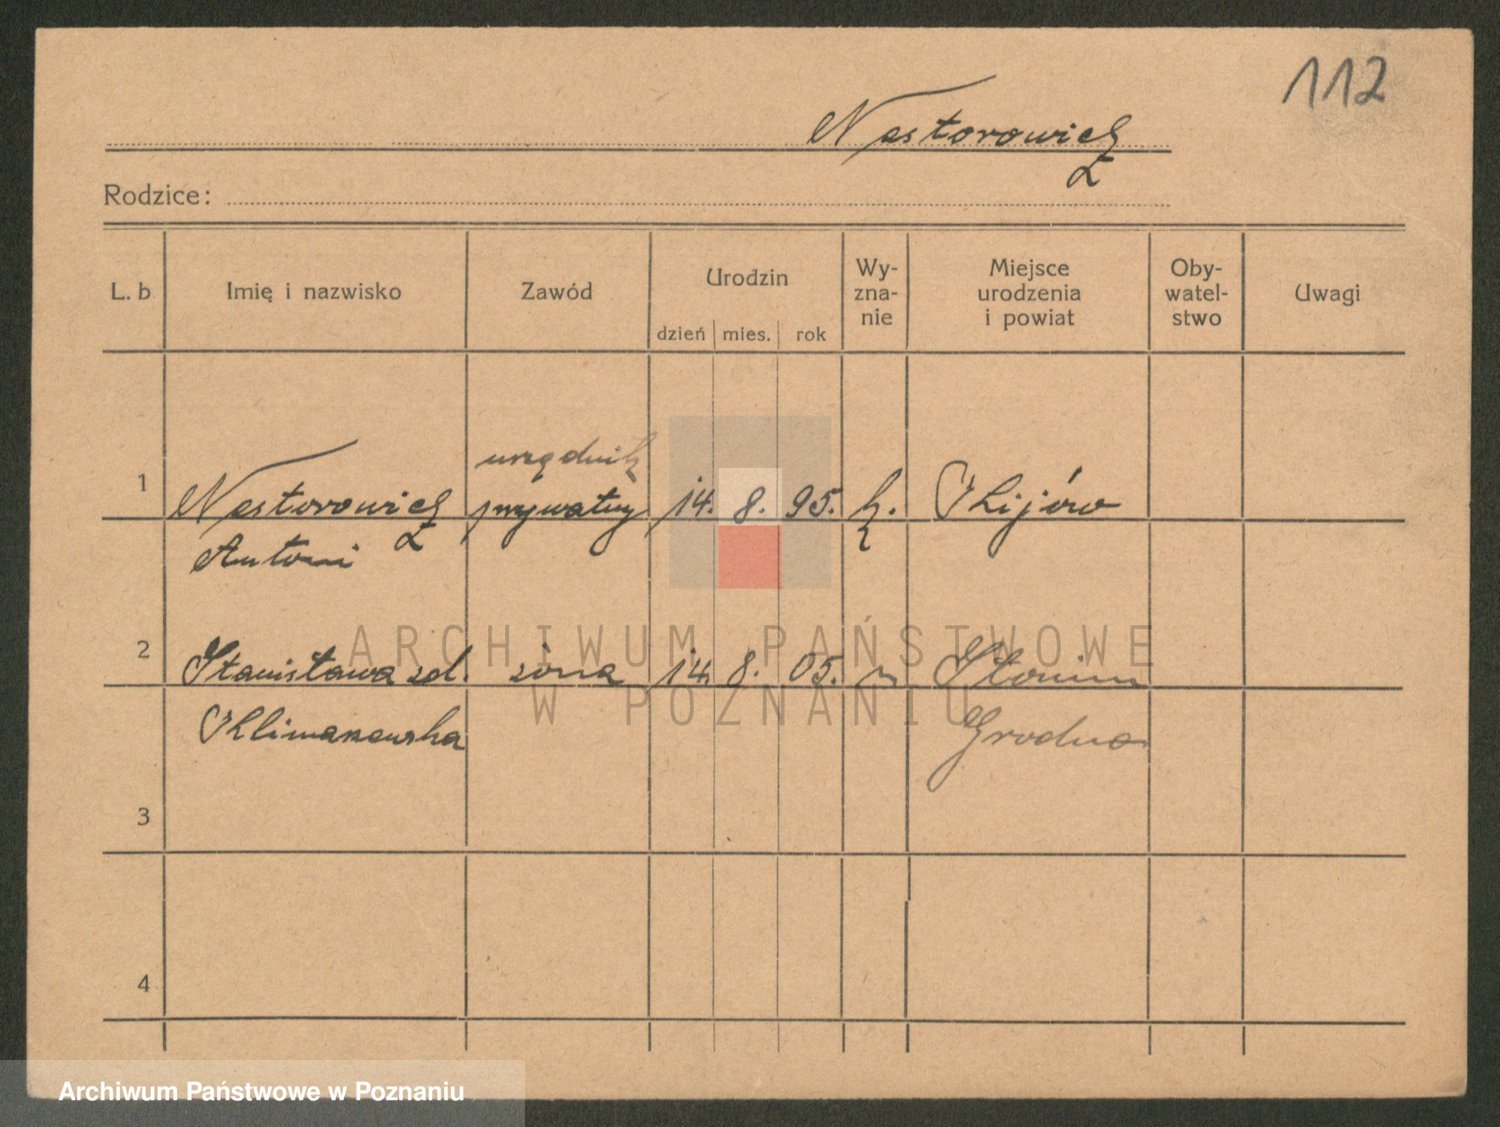 112
Nestorowicz
Rodzice:
L. b
Imię i nazwisko
Zawód
Urodzin
dzień mies. rok
Wy-
zna-
nie
Miejsce
urodzenia
i powiat
Oby-
watel-
stwo
Uwagi
1
Nestorowicz
Antoni
urzędnik
prywatny
14. 8. 95.
k.
Kijów
2
Stanisława zd.
Klimaszewska
żona
14. 8. 05.
Słonim
Grodno
3
4
ARCHIWUM PAŃSTWOWE
W POZNANIU
Archiwum Państwowe w Poznaniu